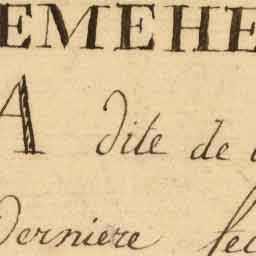 EMEHE
A dite de
Derniere